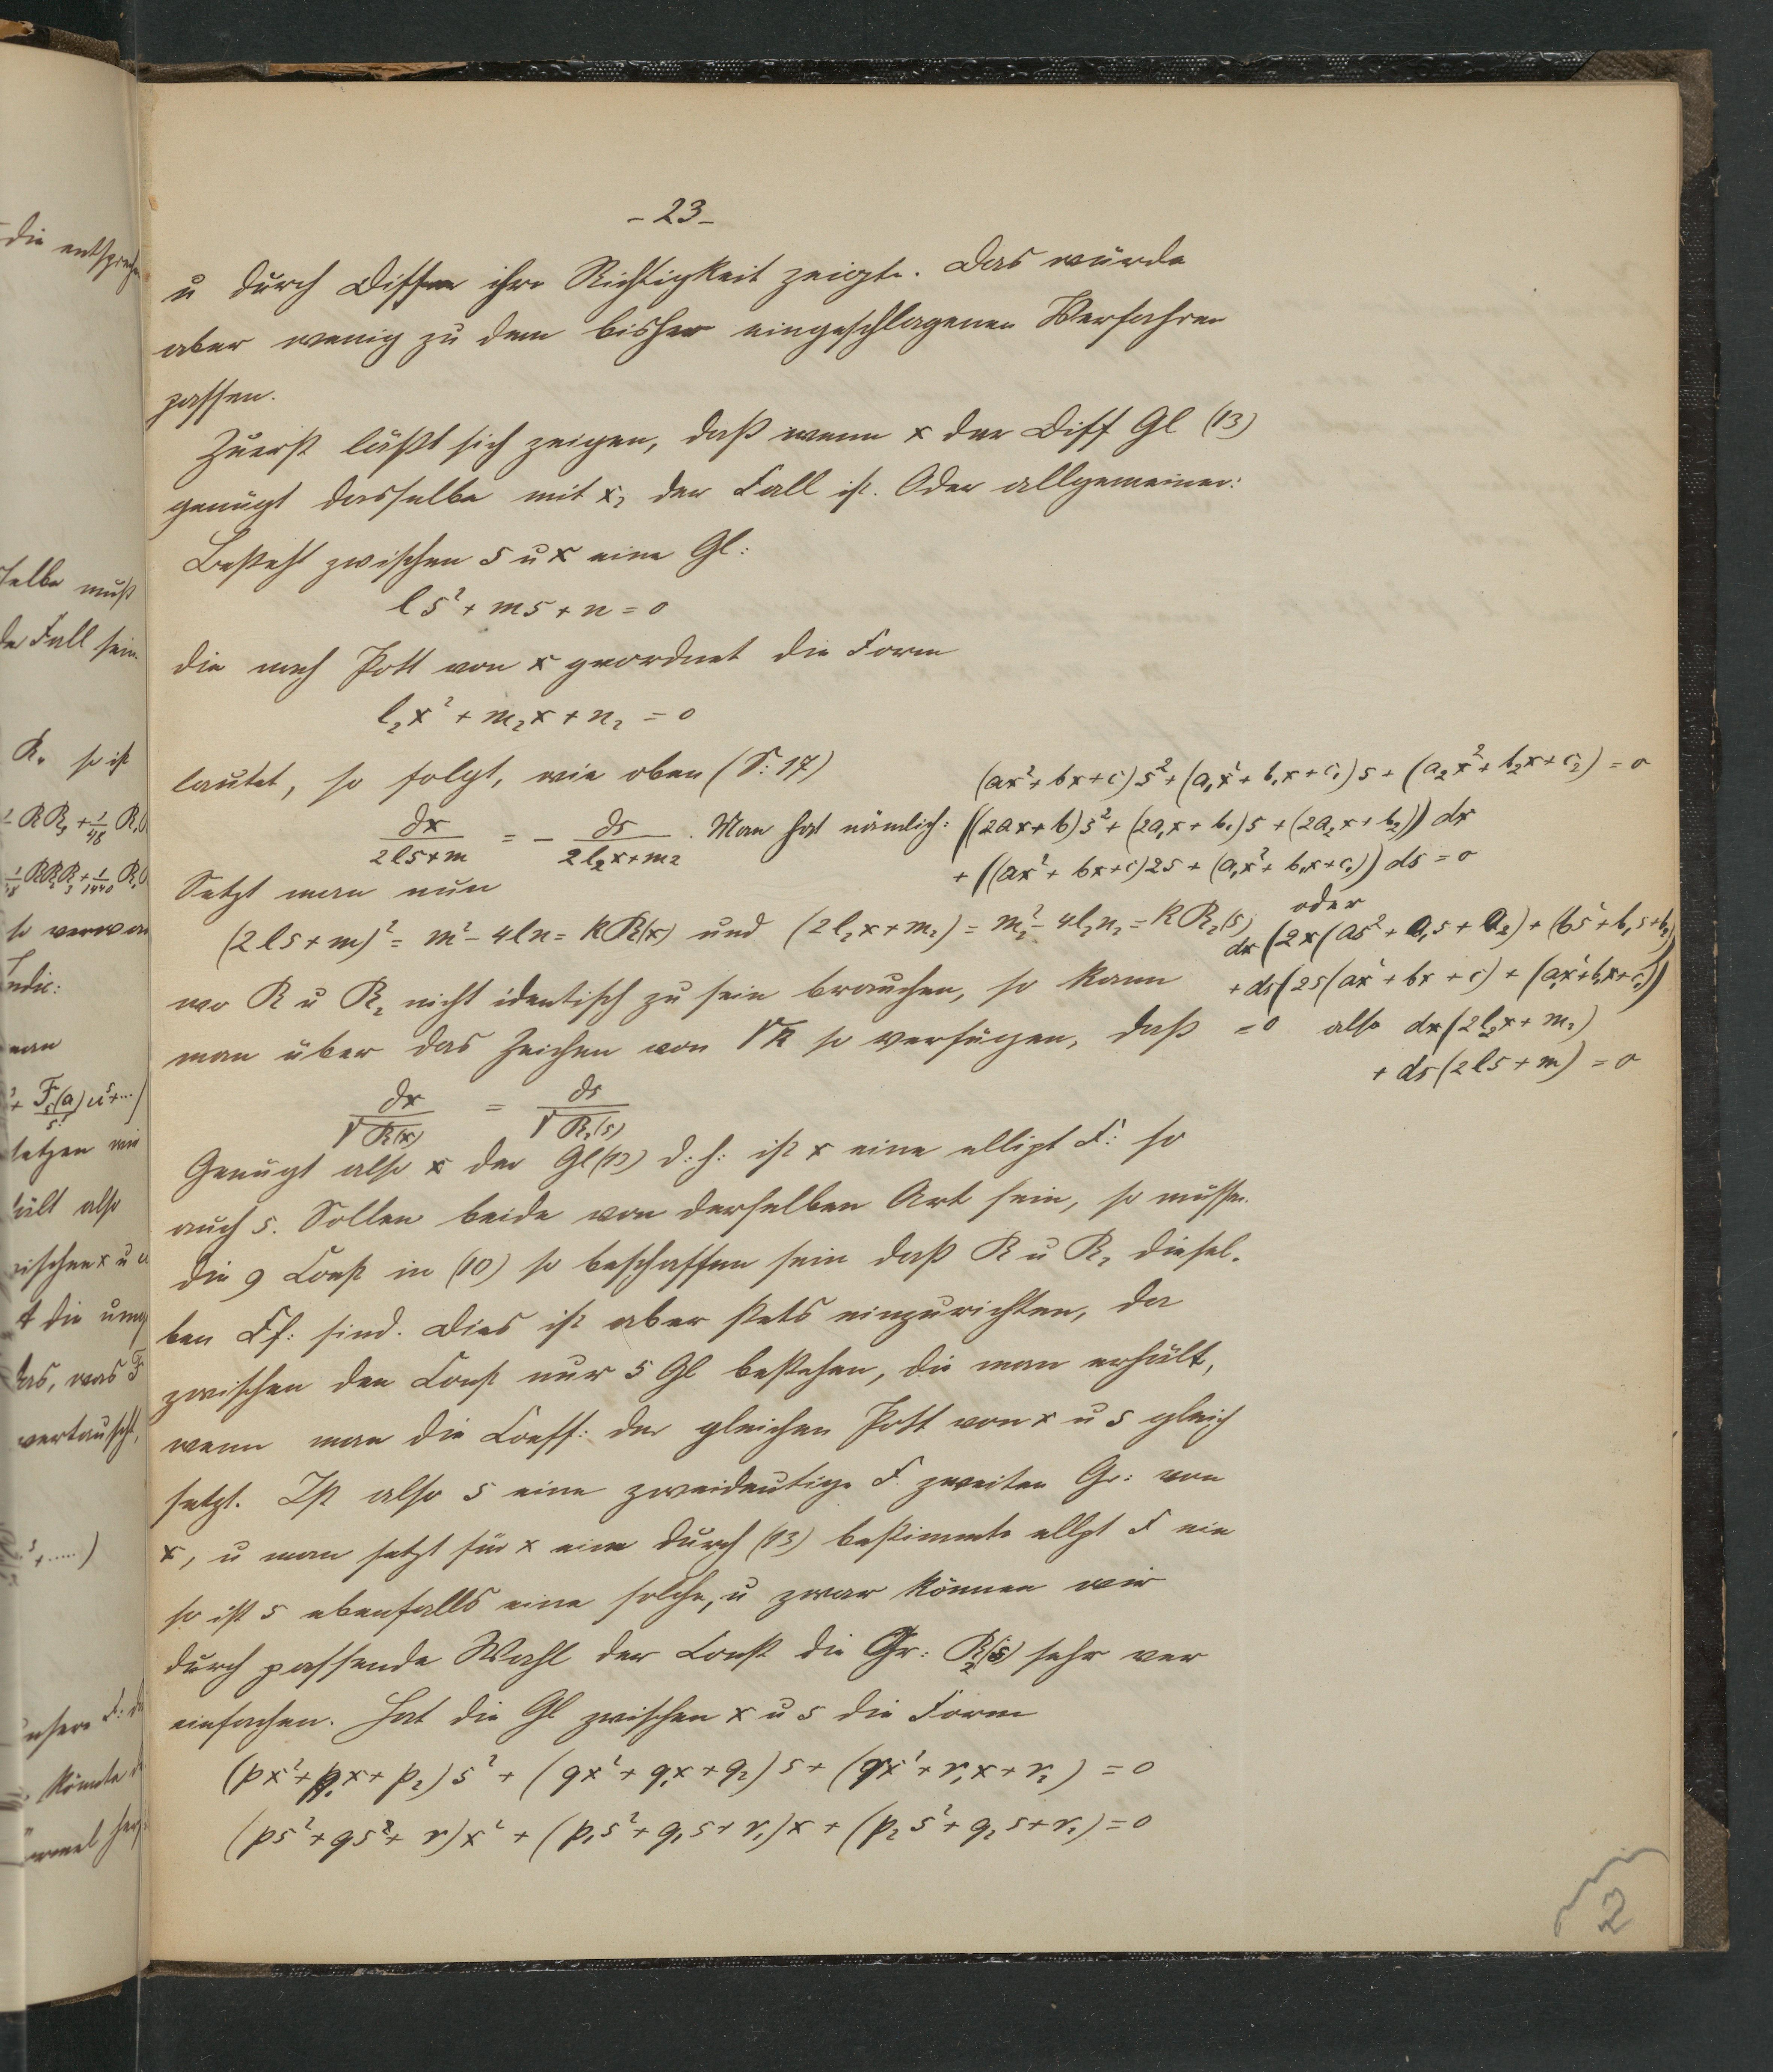 - 23 -
u durch Diffen ihre Richtigkeit zeigte. Das würde
aber wenig zu dem bisher eingeschlagenen Verfahren
passen.
Zuerst läßt sich zeigen, daß wenn x der Diff Gl (13)
genügt dasselbe mit x₂ der Fall ist. Oder allgemeiner:
Besteht zwischen s u x eine Gl:
ls² + ms + n = 0
die nach Pott von x geordnet die Form
l₂x² + m₂x + n₂ = 0
lautet, so folgt, wie oben (S: 17)
dx/(2ls+m) = - ds/(2l₂x+m₂). Man hat nämlich:
(ax²+bx+c)s² + (a₁x²+b₁x+c₁)s + (a₂x²+b₂x+c₂) = 0
((2ax+b)s² + (2a₁x+b₁)s + (2a₂x+b₂)) dx
+ ((ax²+bx+c)2s + (a₁x²+b₁x+c₁)) ds = 0
oder
dx(2x(as²+a₁s+a₂) + (bs²+b₁s+b₂))
+ ds(2s(ax²+bx+c) + (a₁x²+b₁x+c₁))
= 0 also dx(2l₂x+m₂)
+ ds(2ls+m) = 0
Setzt man nun
(2ls+m)² = m² - 4ln = kR(x) und (2l₂x+m₂) = m₂² - 4l₂n₂ = kR₂(s)
wo R u R₂ nicht identisch zu sein brauchen, so kann
man über das Zeichen von √R so verfügen, daß
dx/√R(x) = ds/√R₂(s)
Genügt also x der Gl (13) d: h: ist x eine ellipt F: so
auch s. Sollen beide von derselben Art sein, so müssen
die 9 Const in (10) so beschaffen sein daß R u R₂ diesel-
ben Ff: sind. Dies ist aber stets einzurichten, da
zwischen den Const nur 5 Gl bestehen, die man erhält,
wenn man die Coeff: der gleichen Pott von x u s gleich
setzt. Ist also s eine zweideutige F. zweiten Gr: von
x, u man setzt für x eine durch (13) bestimmte ellpt F ein
so ist s ebenfalls eine solche, u zwar können wir
durch passende Wahl der Const die Gr: R₂(s) sehr ver
einfachen. Hat die Gl zwischen x u s die Form
(px²+p₁x+p₂)s² + (qx²+q₁x+q₂)s + (rx²+r₁x+r₂) = 0
(ps²+qs²+r)x² + (p₁s²+q₁s+r₁)x + (p₂s²+q₂s+r₂) = 0
2